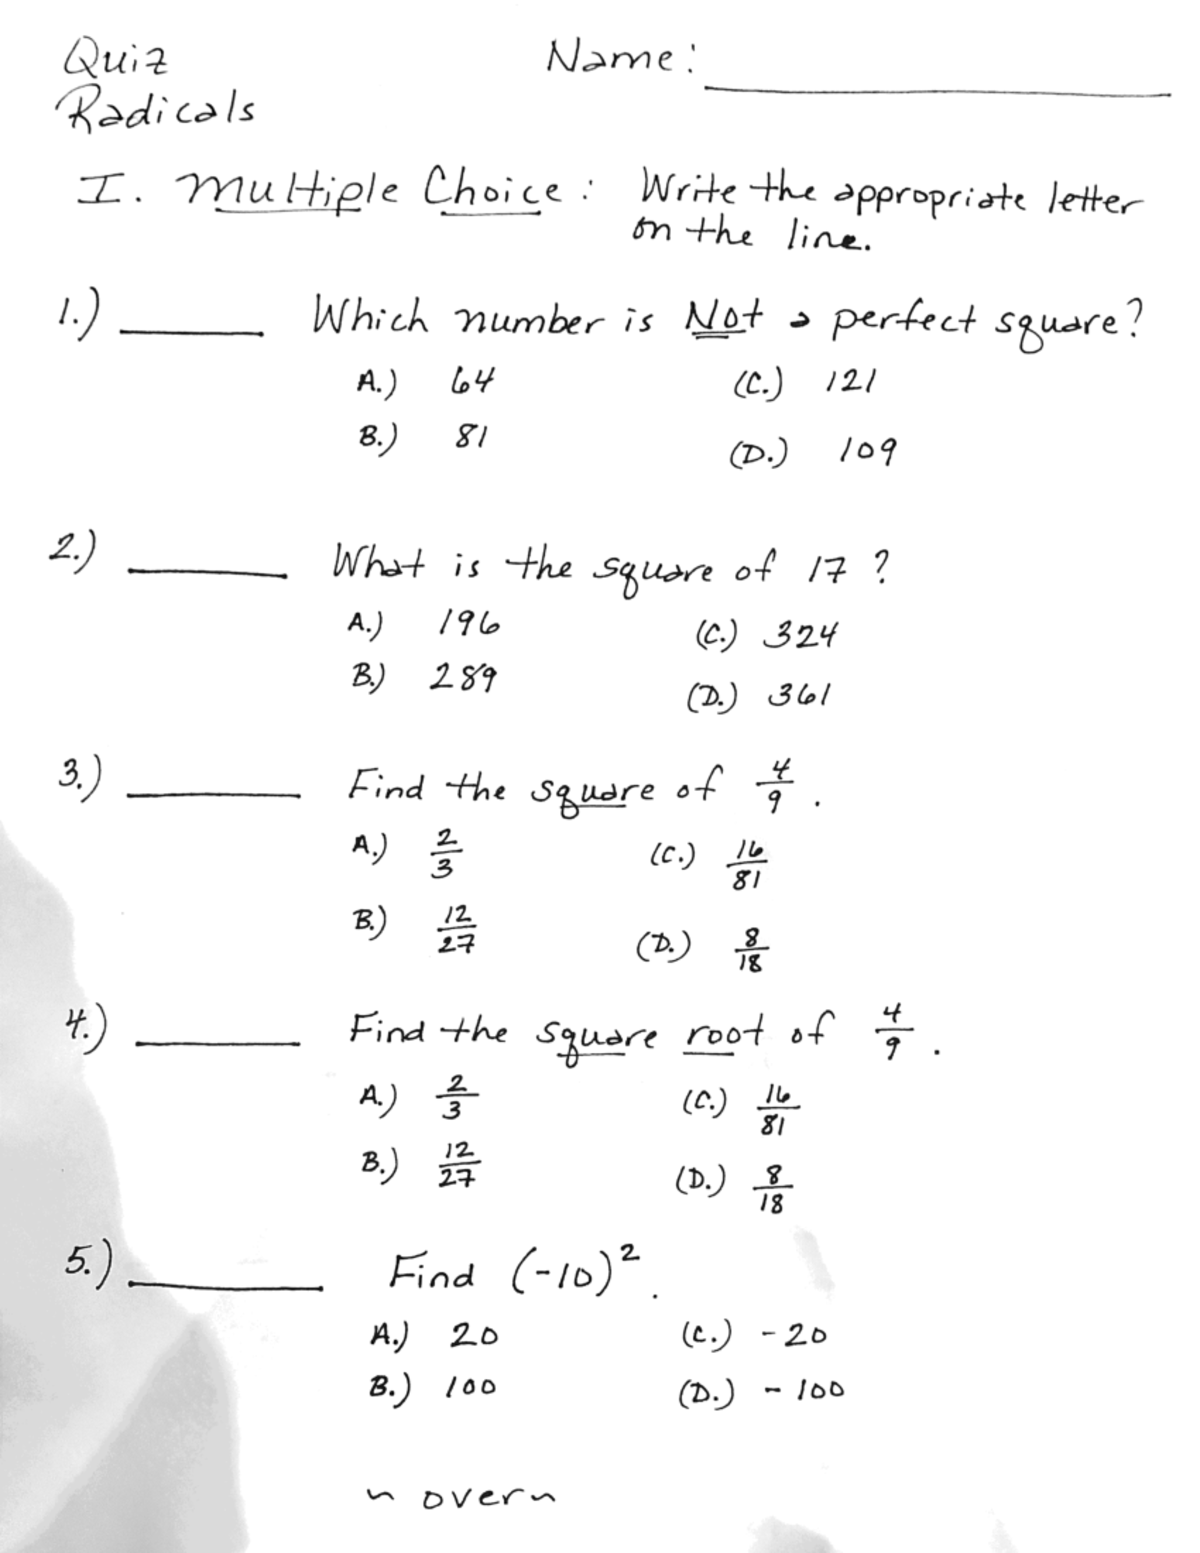 Quiz Name: ____________
Radicals
I. Multiple Choice: Write the appropriate letter
on the line.
1.) ______ Which number is Not a perfect square?
A.) 64 (C.) 121
B.) 81 (D.) 109
2.) ______ What is the square of 17?
A.) 196 (C.) 324
B.) 289 (D.) 361
3.) ______ Find the square of 4/9.
A.) 2/3 (C.) 16/81
B.) 12/27 (D.) 8/18
4.) ______ Find the square root of 4/9.
A.) 2/3 (C.) 16/81
B.) 12/27 (D.) 8/18
5.) ______ Find (-10)².
A.) 20 (C.) -20
B.) 100 (D.) -100
~ over ~